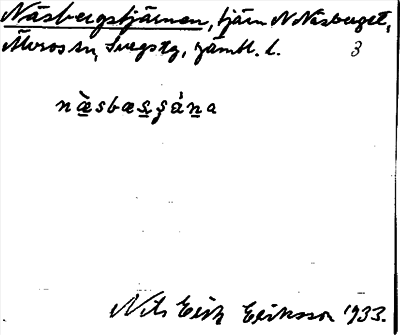 Näsbergstjärnen, tjärn N Näsberget,
Älvros sn, Svegs tg, Jämtl. l. 3
næ̀sbæs̱ʂá̱ṉa
Nils Erik Eriksson 1933.